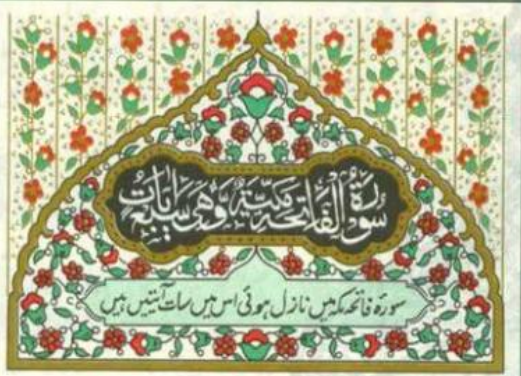 سُورَةُ الْفَاتِحَةِ مَكِّيَّةٌ وَّهِىَ سَبْعُ اٰيَاتٍ
سورۂ فاتحہ مکہ میں نازل ہوئی اس میں سات آیتیں ہیں